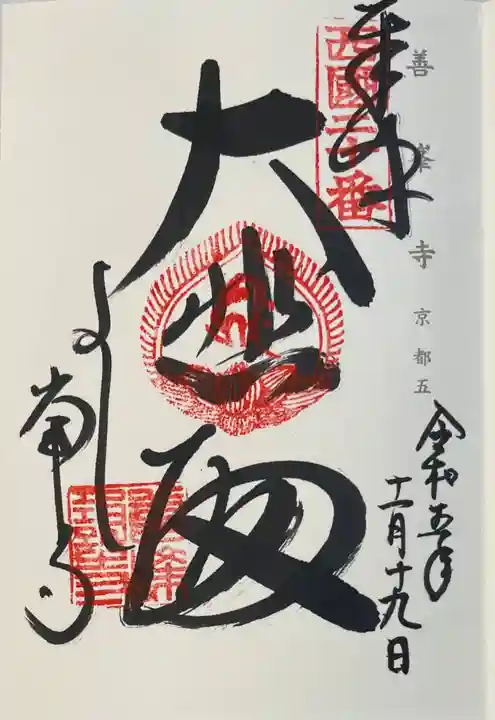 善峯寺 京都五
奉拝
西國二十番
令和五年
十一月十九日
大悲殿
よし峯寺